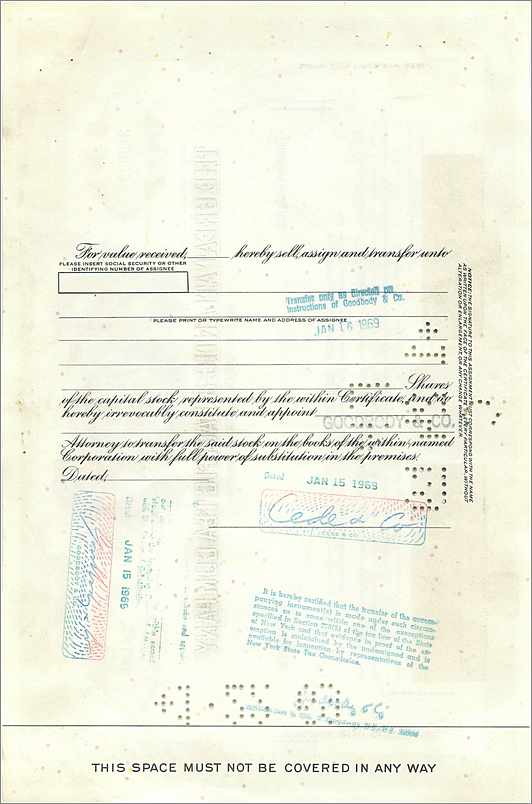 For value received, hereby sell, assign and transfer unto
PLEASE INSERT SOCIAL SECURITY OR OTHER
IDENTIFYING NUMBER OF ASSIGNEE
Transfer only as directed on
instructions of Goodbody & Co.
PLEASE PRINT OR TYPEWRITE NAME AND ADDRESS OF ASSIGNEE
JAN 16 1969
Shares
of the capital stock, represented by the within Certificate, and do
hereby irrevocably constitute and appoint
GOODBODY & CO.
Attorney to transfer the said stock on the books of the within named
Corporation with full power of substitution in the premises.
Dated,
Dated JAN 15 1969
Cede & Co
NOTICE: THE SIGNATURE TO THIS ASSIGNMENT MUST CORRESPOND WITH THE NAME
AS WRITTEN UPON THE FACE OF THE CERTIFICATE IN EVERY PARTICULAR, WITHOUT
ALTERATION OR ENLARGEMENT, OR ANY CHANGE WHATEVER.
JAN 15 1969
It is hereby certified that the transfer of the accom-
panying instrument(s) is made under such circum-
stances as to come within one of the exceptions
specified in Section 270(5) of the tax law of the State
of New York and that evidence in proof of the ex-
emption is maintained by the undersigned and is
available for inspection by representatives of the
New York State Tax Commission.
THIS SPACE MUST NOT BE COVERED IN ANY WAY